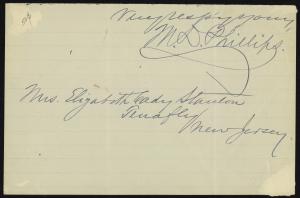 Very resp'y yours,
M. D. Phillips.
Mrs. Elizabeth Cady Stanton
Tenafly
New Jersey.